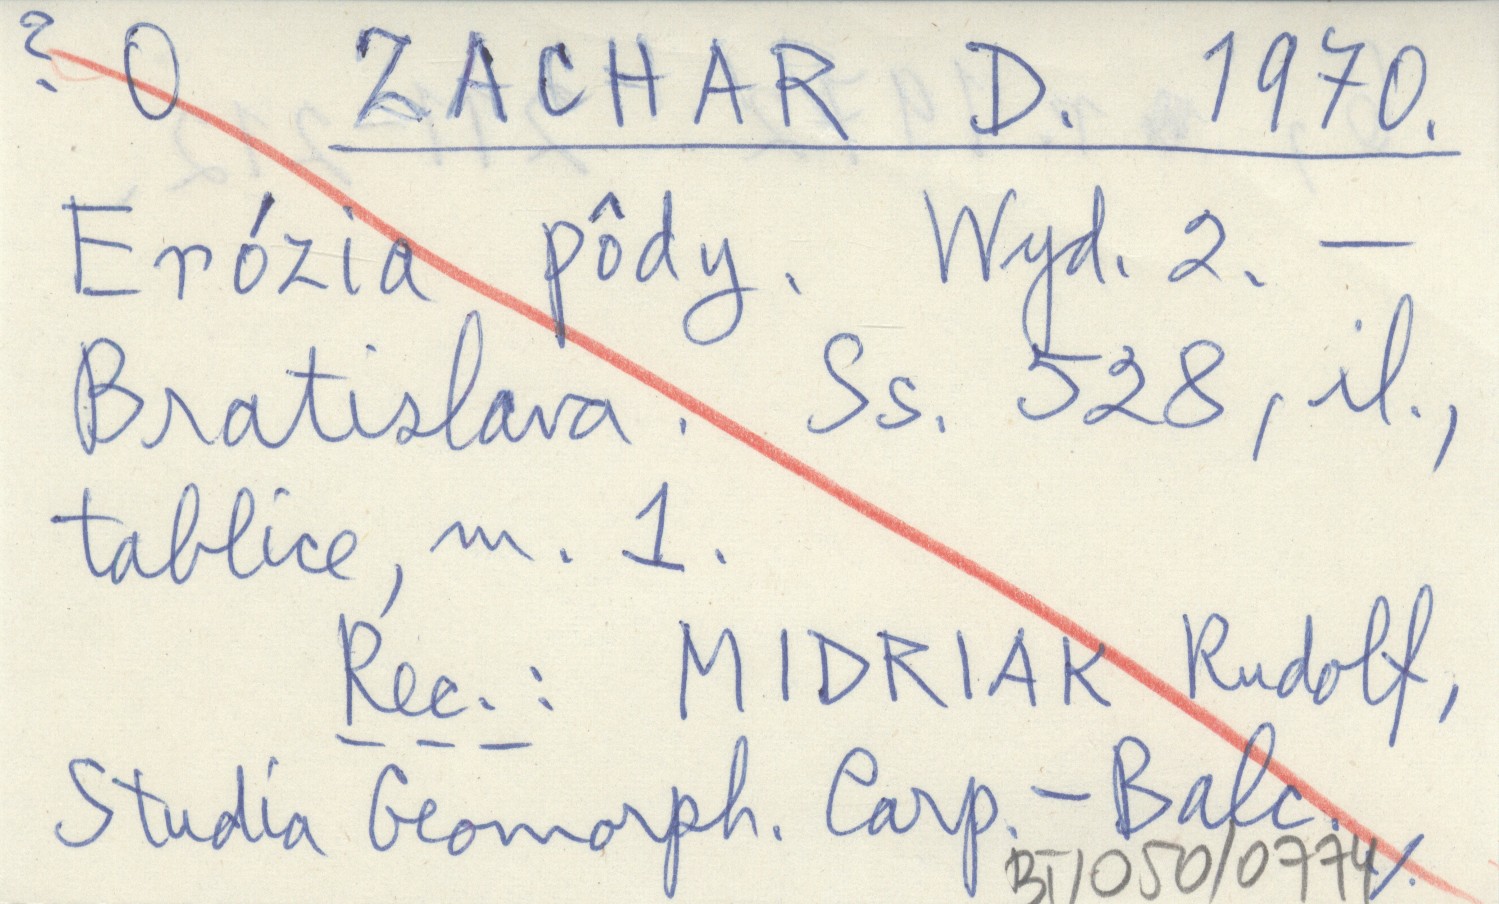 ? O ZACHAR D. 1970.
Erózia pôdy. Wyd. 2. —
Bratislava. Ss. 528, il.,
tablice, m. 1.
Rec.: MIDRIAK Rudolf,
Studia Geomorph. Carp.-Balc. ./.
BT/050/0774